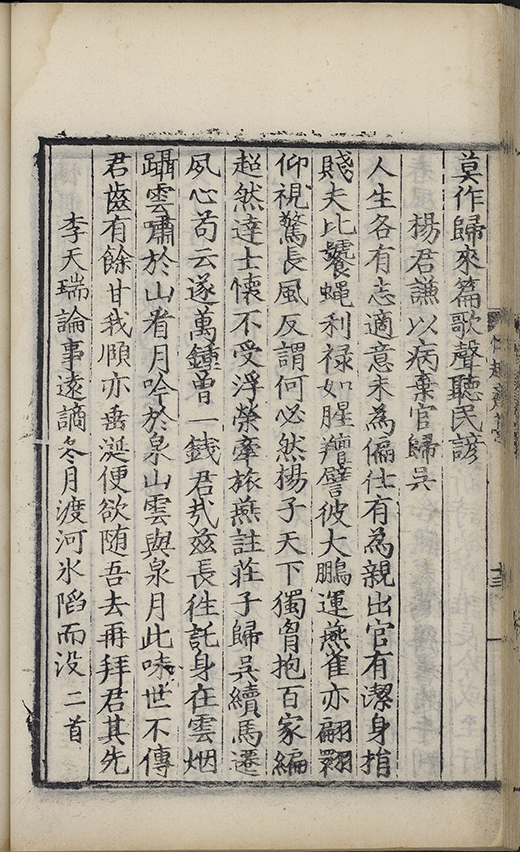 莫作歸來篇歌聲聽民諺
楊君謙以病棄官歸吳
人生各有志適意未為偏仕有為親出官有潔身捐
賤夫比饕蝇利禄如腥羶譬彼大鵬運燕雀亦翩翾
仰視驚長風反謂何必然楊子天下獨胷抱百家編
超然達士懷不受浮榮牽旅燕註莊子歸吳續馬遷
夙心苟云遂萬鍾曾一銭君㢤兹長徃託身在雲烟
躡雲嘯於山看月吟於泉山雲與泉月此味世不傳
君齒有餘甘我頤亦垂涎便欲随吾去再拜君其先
李天瑞論事遠謫冬月渡河氷陷而没二首